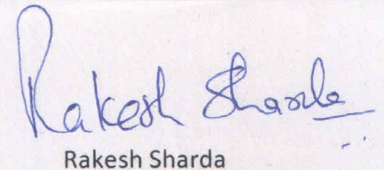 Rakesh Sharda
Rakesh Sharda